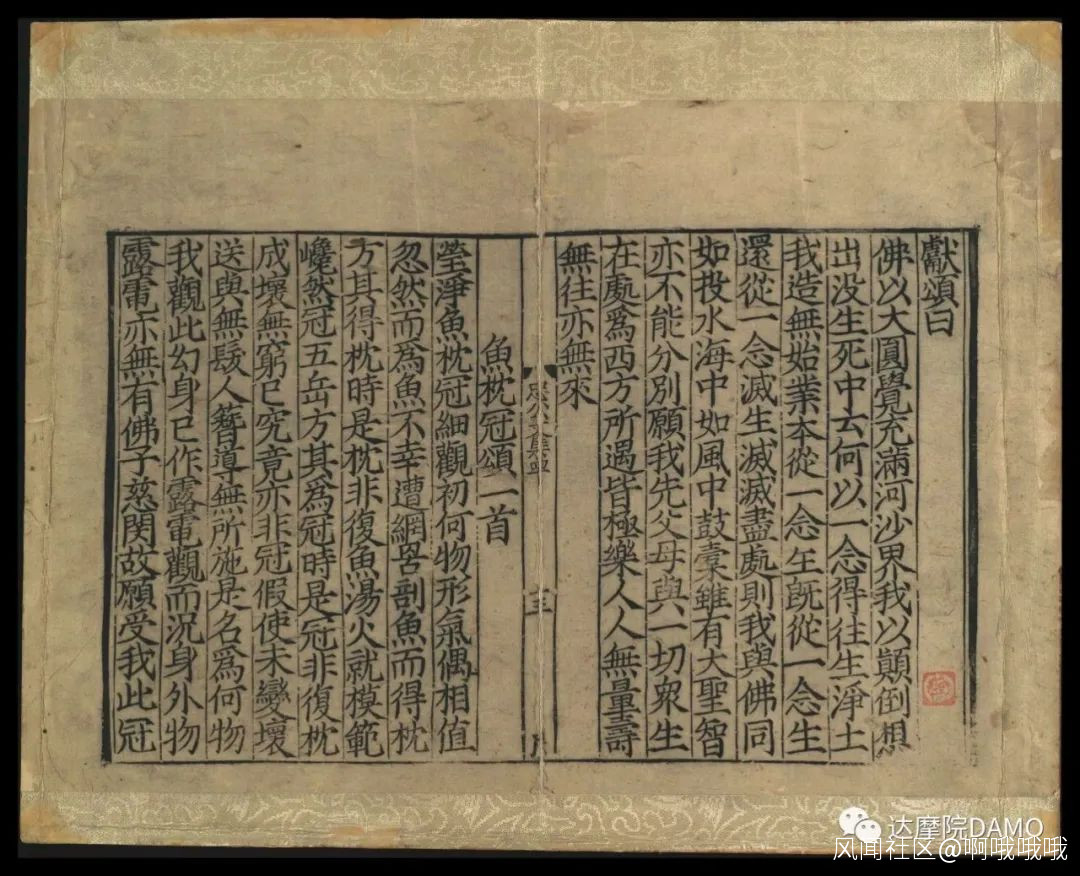 獻頌曰
佛以大圓覺充滿河沙界我以顛倒想
出没生死中云何以一念得往生淨土
我造無始業本從一念生既從一念生
還從一念滅生滅滅盡處則我與佛同
如投水海中如風中鼓橐雖有大聖智
亦不能分別願我先父母與一切衆生
在處爲西方所遇皆極樂人人無量壽
無往亦無來
魚枕冠頌一首
瑩淨魚枕冠細觀初何物形氣偶相值
忽然而爲魚不幸遭網罟剖魚而得枕
方其得枕時是枕非復魚湯火就模範
巉然冠五岳方其爲冠時是冠非復枕
成壞無窮已究竟亦非冠假使未變壞
送與無髮人簪導無所施是名爲何物
我觀此幻身已作露電觀而況身外物
露電亦無有佛子慈閔故願受我此冠
达摩院DAMO
风闻社区@啊哦哦哦